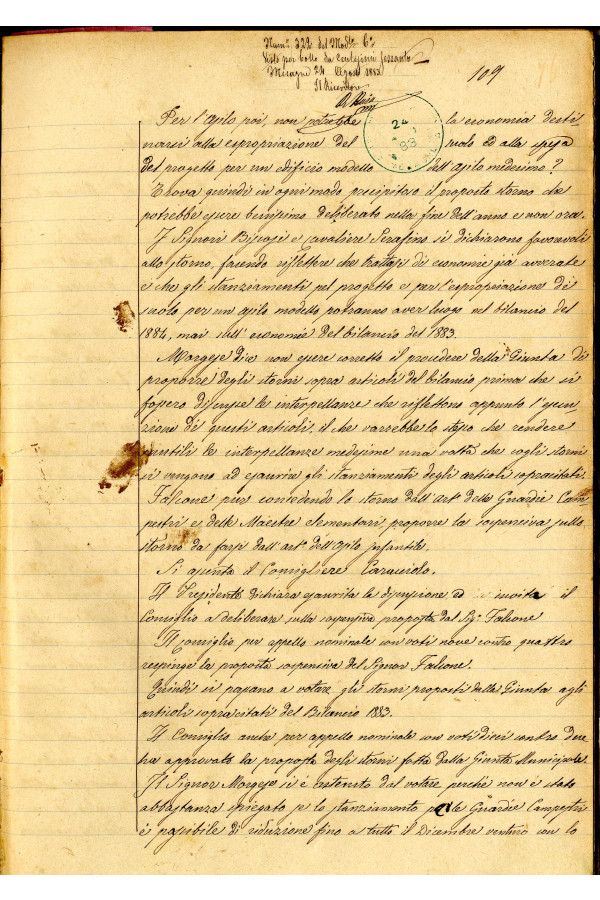 Num. 322 del Mod. 6°
Visto per bollo da centesimi sessanta
Mesagne 24 Agosto 1883
Il Ricevitore
109
24
83
Per l'Asilo poi, non potrebbe la economia desti
narsi alla espropriazione del suolo ed alla spesa
del progetto per un edificio modello dell'Asilo medesimo?
Trova quindi in ogni modo precipitoso il proposto storno che
potrebbe essere benissimo deliberato nella fine dell'anno e non ora.
I Signori e Cavaliere Serafino si dichiarano favorevoli
allo storno, facendo riflettere che trattasi di economie già avverate
e che gli stanziamenti pel progetto e per l'espropriazione di
suolo per un asilo modello potranno aver luogo nel bilancio del
1884, mai sull'economie del bilancio del 1883.
Morgese dice non essere corretto il procedere della Giunta di
proporre degli storni sopra articoli del bilancio prima che si
fossero discusse le interpellanze che riflettono appunto l'esecu
zione di questi articoli, il che varrebbe lo stesso che rendere
inutili le interpellanze medesime una volta che cogli storni
si vengono ad esaurire gli stanziamenti degli articoli sopracitati.
Falcone pur concedendo lo storno dall'art.° delle Guardie Cam
pestri e delle Maestre elementari, proporre la sospensiva sullo
storno da farsi dall'art.° dell'Asilo Infantile.
Si assenta il Consigliere Caracciolo.
Il Presidente dichiara esaurita la discussione ed invita il
Consiglio a deliberare sulla sospensiva proposta dal Sig. Falcone
Il Consiglio per appello nominale con voti nove contro quattro
respinge la proposta sospensiva del Signor Falcone.
Quindi si passano a votare gli storni proposti dalla Giunta agli
articoli sopracitati del Bilancio 1883.
Il Consiglio anche per appello nominale con voti dieci contro due
ha approvato la proposta degli storni fatta dalla Giunta Municipale.
Il Signor Morgese si è astenuto dal votare, perché non è stato
abbastanza spiegato se lo stanziamento per le Guardie Campestri
è possibile di riduzione fino a tutto il Dicembre venturo con lo